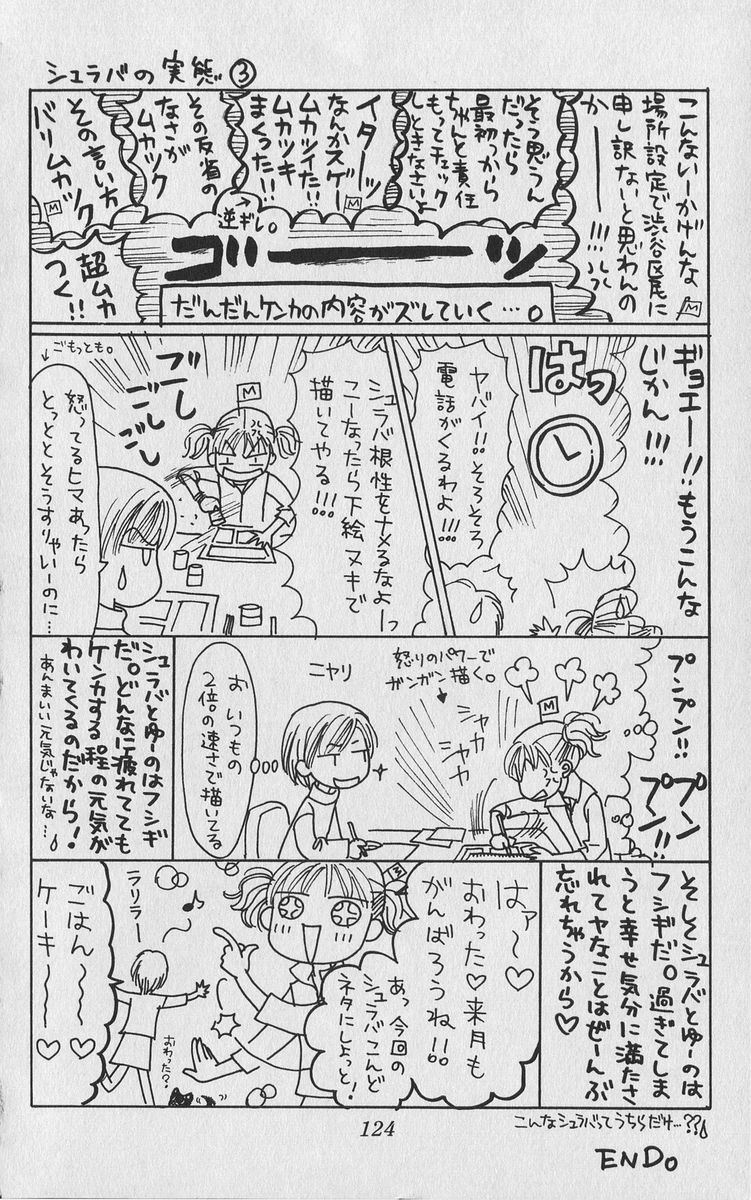 シュラバの実態③
こんないーかげんな
場所設定で渋谷区尾に
申し訳ないと思わんの
かーーー!!!
M
そう思うん
だったら
最初っから
ちゃんと責任
もってチェック
しときなさいよ
イターッ
なんかスゲー
ムカツイた!!
ムカツキ
まくった!!
逆ギレ。
その反省の
なさが
ムカツク
M
その言い方
バリムカツク
超ムカ
つく!!
ゴーーッ
だんだんケンカの内容がズレていく…。
ギョエー!!もうこんな
じかん!!!
はっ
ヤバイ!!そろそろ
電話がくるわよ!!!
シュラバ根性をナメるなよーっ
こーなったら下絵ヌキで
描いてやる!!!
M
ブーし
ごしごし
ごもっとも。
怒ってるヒマあったら
とっととそうすりゃいーのに…
プンプン!!
プンプン!!
M
怒りのパワーで
ガンガン描く。
シャカ
シャカ
ニヤリ
お いつもの
2倍の速さで描いてる
シュラバとゆーのはフシギ
だ。どんなに疲れてても
ケンカする程の元気が
わいてくるのだから!
あんまいい元気じゃないな…
そしてシュラバとゆーのは
フシギだ。過ぎてしま
うと幸せ気分に満たさ
れてヤなことはぜーんぶ
忘れちゃうから♡
はァ〜♡
おわった♡来月も
がんばろうね!!
あっ今回の
シュラバこんど
ネタにしよっと!
ラリラー♪
おわった?
ごはん〜〜♡
ケーキ〜〜♡
124
こんなシュラバってうちらだけ…??
END。